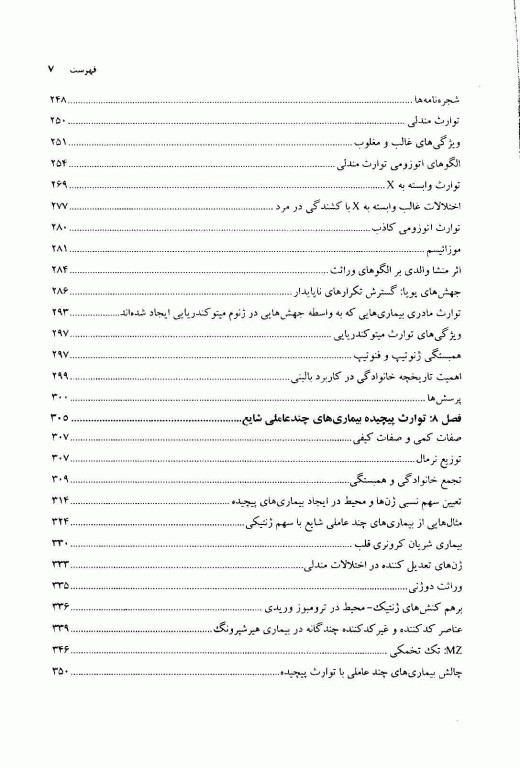 فهرست ۷
شجره‌نامه‌ها ۲۴۸
توارث مندلی ۲۵۰
ویژگی‌های غالب و مغلوب ۲۵۱
الگوهای اتوزومی توارث مندلی ۲۵۴
توارث وابسته به X ۲۶۹
اختلالات غالب وابسته به X با کشندگی در مرد ۲۷۷
توارث اتوزومی کاذب ۲۸۰
موزائیسم ۲۸۱
اثر منشا والدی بر الگوهای وراثت ۲۸۴
جهش‌های پویا: گسترش تکرارهای ناپایدار ۲۸۶
توارث مادری بیماری‌هایی که به واسطه جهش‌هایی در ژنوم میتوکندریایی ایجاد شده‌اند ۲۹۳
ویژگی‌های توارث میتوکندریایی ۲۹۷
همبستگی ژنوتیپ و فنوتیپ ۲۹۷
اهمیت تاریخچه خانوادگی در کاربرد بالینی ۲۹۹
پرسش‌ها ۳۰۰
فصل ۸: توارث پیچیده بیماری‌های چندعاملی شایع ۳۰۵
صفات کمی و صفات کیفی ۳۰۷
توزیع نرمال ۳۰۷
تجمع خانوادگی و همبستگی ۳۰۹
تعیین سهم نسبی ژن‌ها و محیط در ایجاد بیماری‌های پیچیده ۳۱۴
مثال‌هایی از بیماری‌های چند عاملی شایع با سهم ژنتیکی ۳۲۴
بیماری شریان کرونری قلب ۳۳۰
ژن‌های تعدیل کننده در اختلالات مندلی ۳۳۳
وراثت دوژنی ۳۳۵
برهم کنش‌های ژنتیک-محیط در ترومبوز وریدی ۳۳۶
عناصر کدکننده و غیرکدکننده چندگانه در بیماری هیرشپرونگ ۳۳۹
MZ: تک تخمکی ۳۴۶
چالش بیماری‌های چند عاملی با توارث پیچیده ۳۵۰